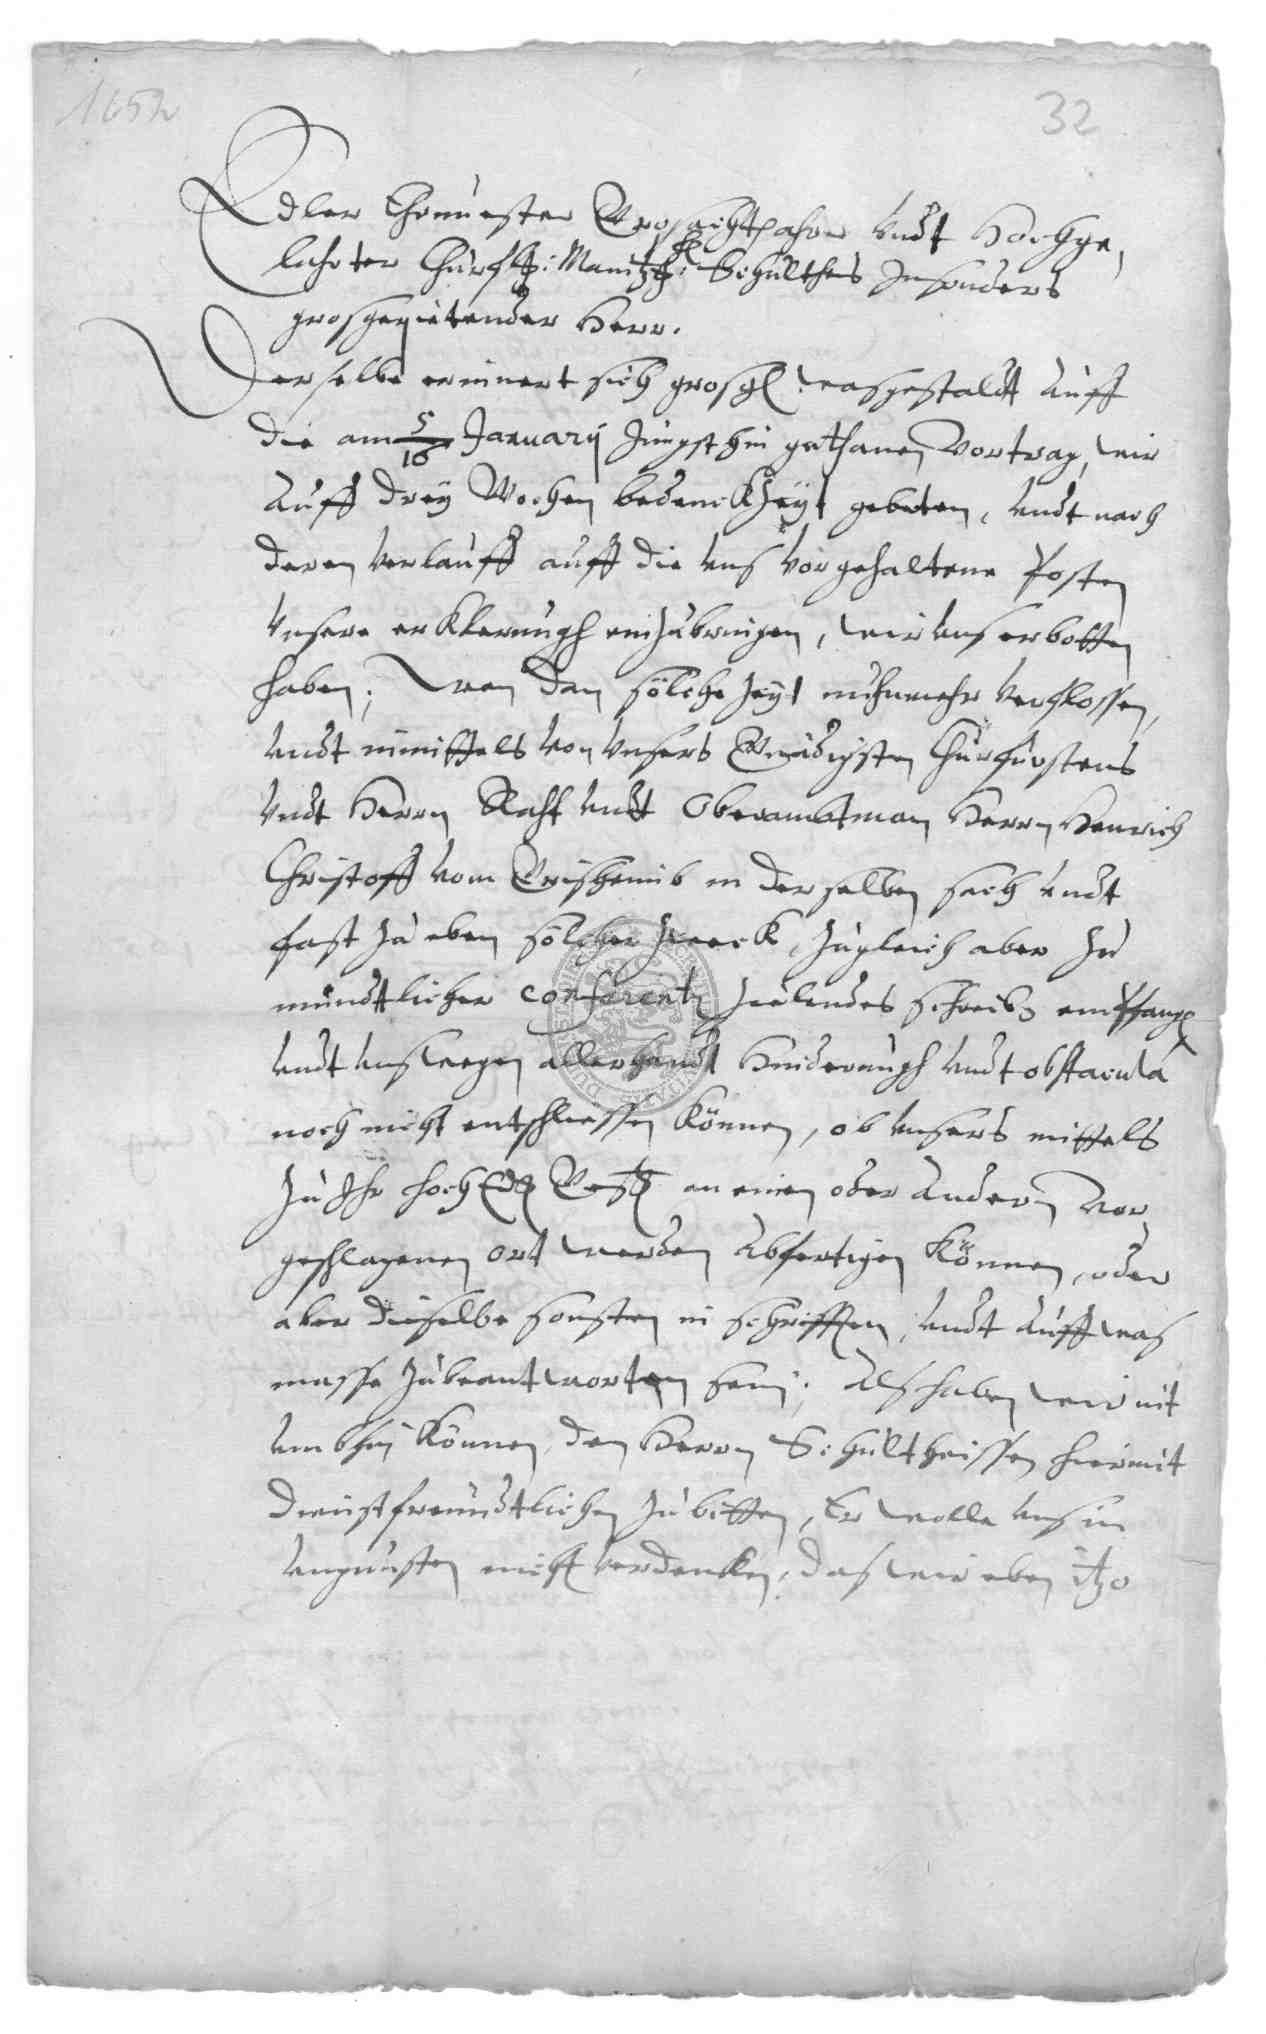 1652
32
Edler Ehrnuester Grosachtpahrer undt Hochge,
lahrter Churfl: Maintz: Schulthes Insonders
grosgepietender Herr.
Derselbe erinnert sich grosgl wasgestaldt auff
die am 5/16 January Jüngsthin gethanen Vortrag, wir
auff drey Wochen bedenckZeyt gebeten, undt nach
deren verlauff auff die uns vorgehaltene Posten
unsere erklerungh einzubringen, wir uns erbotten
haben; wen dan solche Zeyt nuhnmehr verflossen,
undt inmittels von unsers Gnädigsten Churfürstens
undt Herrn Raht undt Oberambtman Herrn Henrich
Christoff vom Grishemb in derselben sach undt
fast zu eben solchen Zweck, zugleich aber zu
mündtlicher conferentz zielendes schreiben empfangen
undt uns wegen allerhandt Hinderungh undt obstacula
noch nicht entschliessen können, ob unsers mittels
zu Ihr hochEdl Gestr an einen oder andern vor,
geschlagenen ort werden abfertigen können, oder
aber dieselbe sonsten in schrifften, undt auff was
masse zubeantworten sein; Als haben wir nit
umbhin können, den Herrn Schultheissen hiermit
dienstfreundtlichen zu bitten, Er wolle uns in
ungunsten nicht verdencken, das wir eben itzo